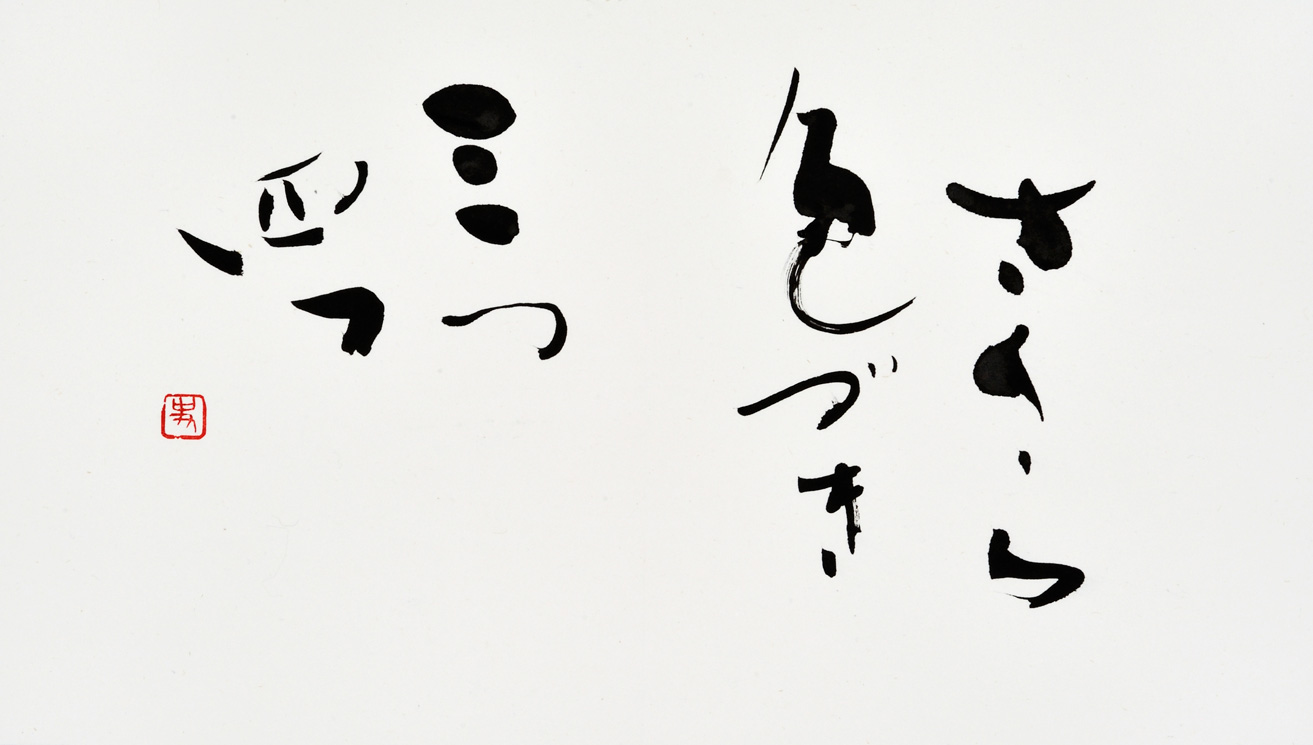 さくら
色づき
三つ
男